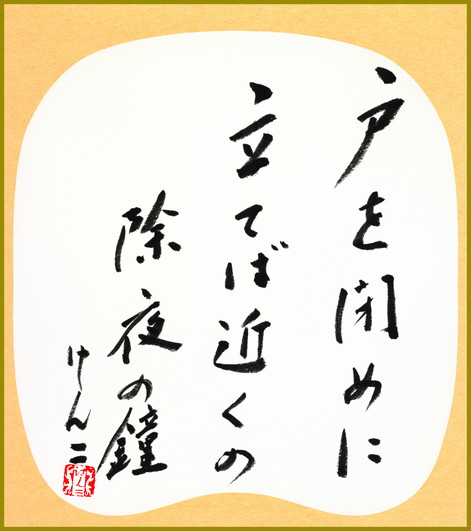 戸を閉めに
立てば近くの
除夜の鐘
けん二